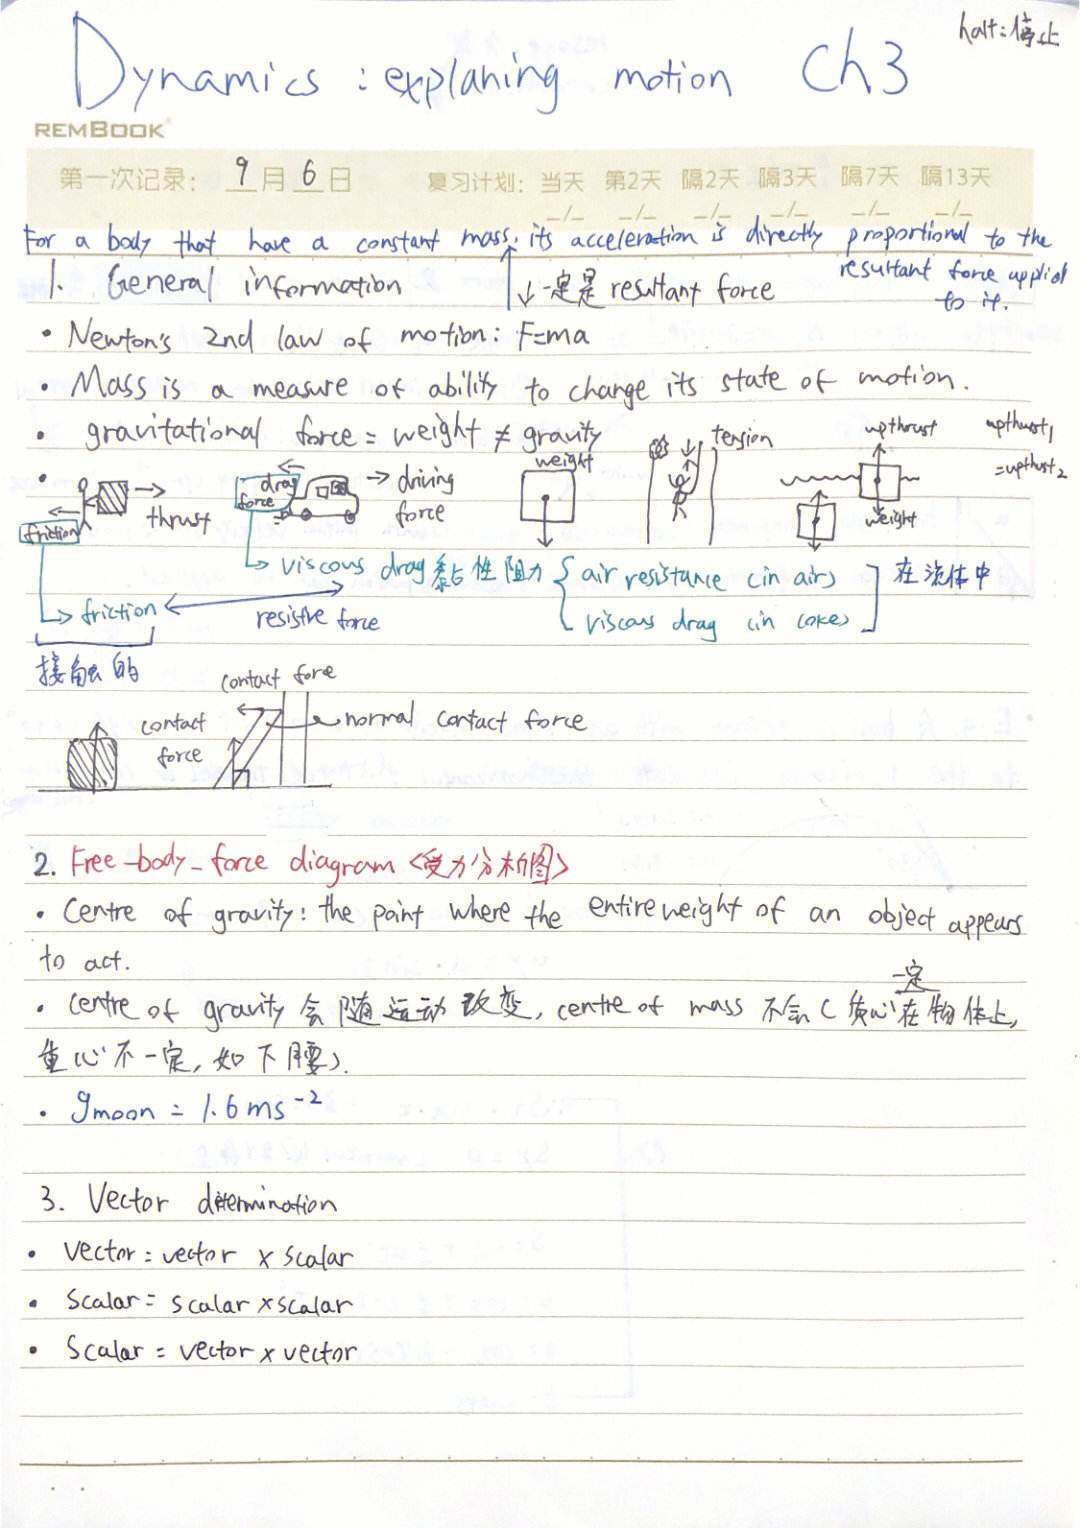 halt:停止
Dynamics : explaning motion Ch3
REMBOOK
第一次记录: 9月6日 复习计划: 当天 第2天 隔2天 隔3天 隔7天 隔13天
_/_ _/_ _/_ _/_ _/_ _/_
For a body that have a constant mass, its acceleration is directly proportional to the
resultant force applied
to it.
1. General information
↓一定是 resultant force
• Newton's 2nd law of motion: F=ma
• Mass is a measure of ability to change its state of motion.
• gravitational force = weight ≠ gravity
• friction
thrust
drag
force
driving
force
weight
tension
upthrust
weight
upthrust1
=upthrust2
viscous drag 黏性阻力 { air resistance (in air)
viscous drag (in coke) ] 在流体中
friction
resistive force
接触的
contact force
contact
force
normal contact force
2. Free-body-force diagram <受力分析图>
• Centre of gravity: the point where the entire weight of an object appears
to act.
• centre of gravity 会随运动改变, centre of mass 不会 (质心一定在物体上,
重心不一定, 如下腰).
• gmoon = 1.6ms⁻²
3. Vector determination
• Vector = vector × scalar
• Scalar = scalar × scalar
• Scalar = vector × vector